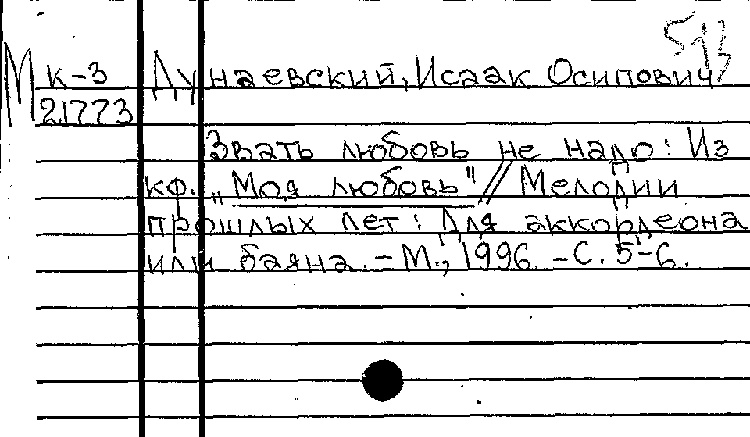 М к-3 Дунаевский, Исаак Осипович
21773
Звать любовь не надо: Из
кф. "Моя любовь" // Мелодии
прошлых лет: Для аккордеона
или баяна. - М., 1996. - С. 5-6.